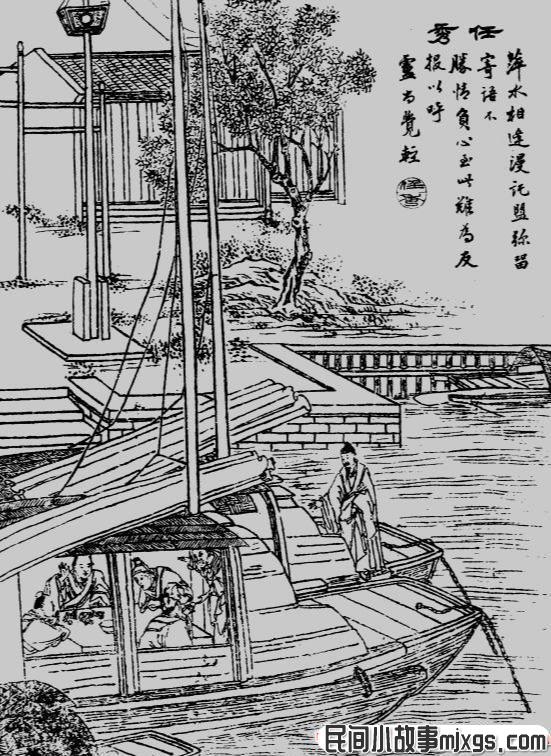 任秀
萍水相逢漫託盟弥留
寄語不
勝情負心至此難為友
報以呼
盧尚覺輕
民间小故事mixgs.com